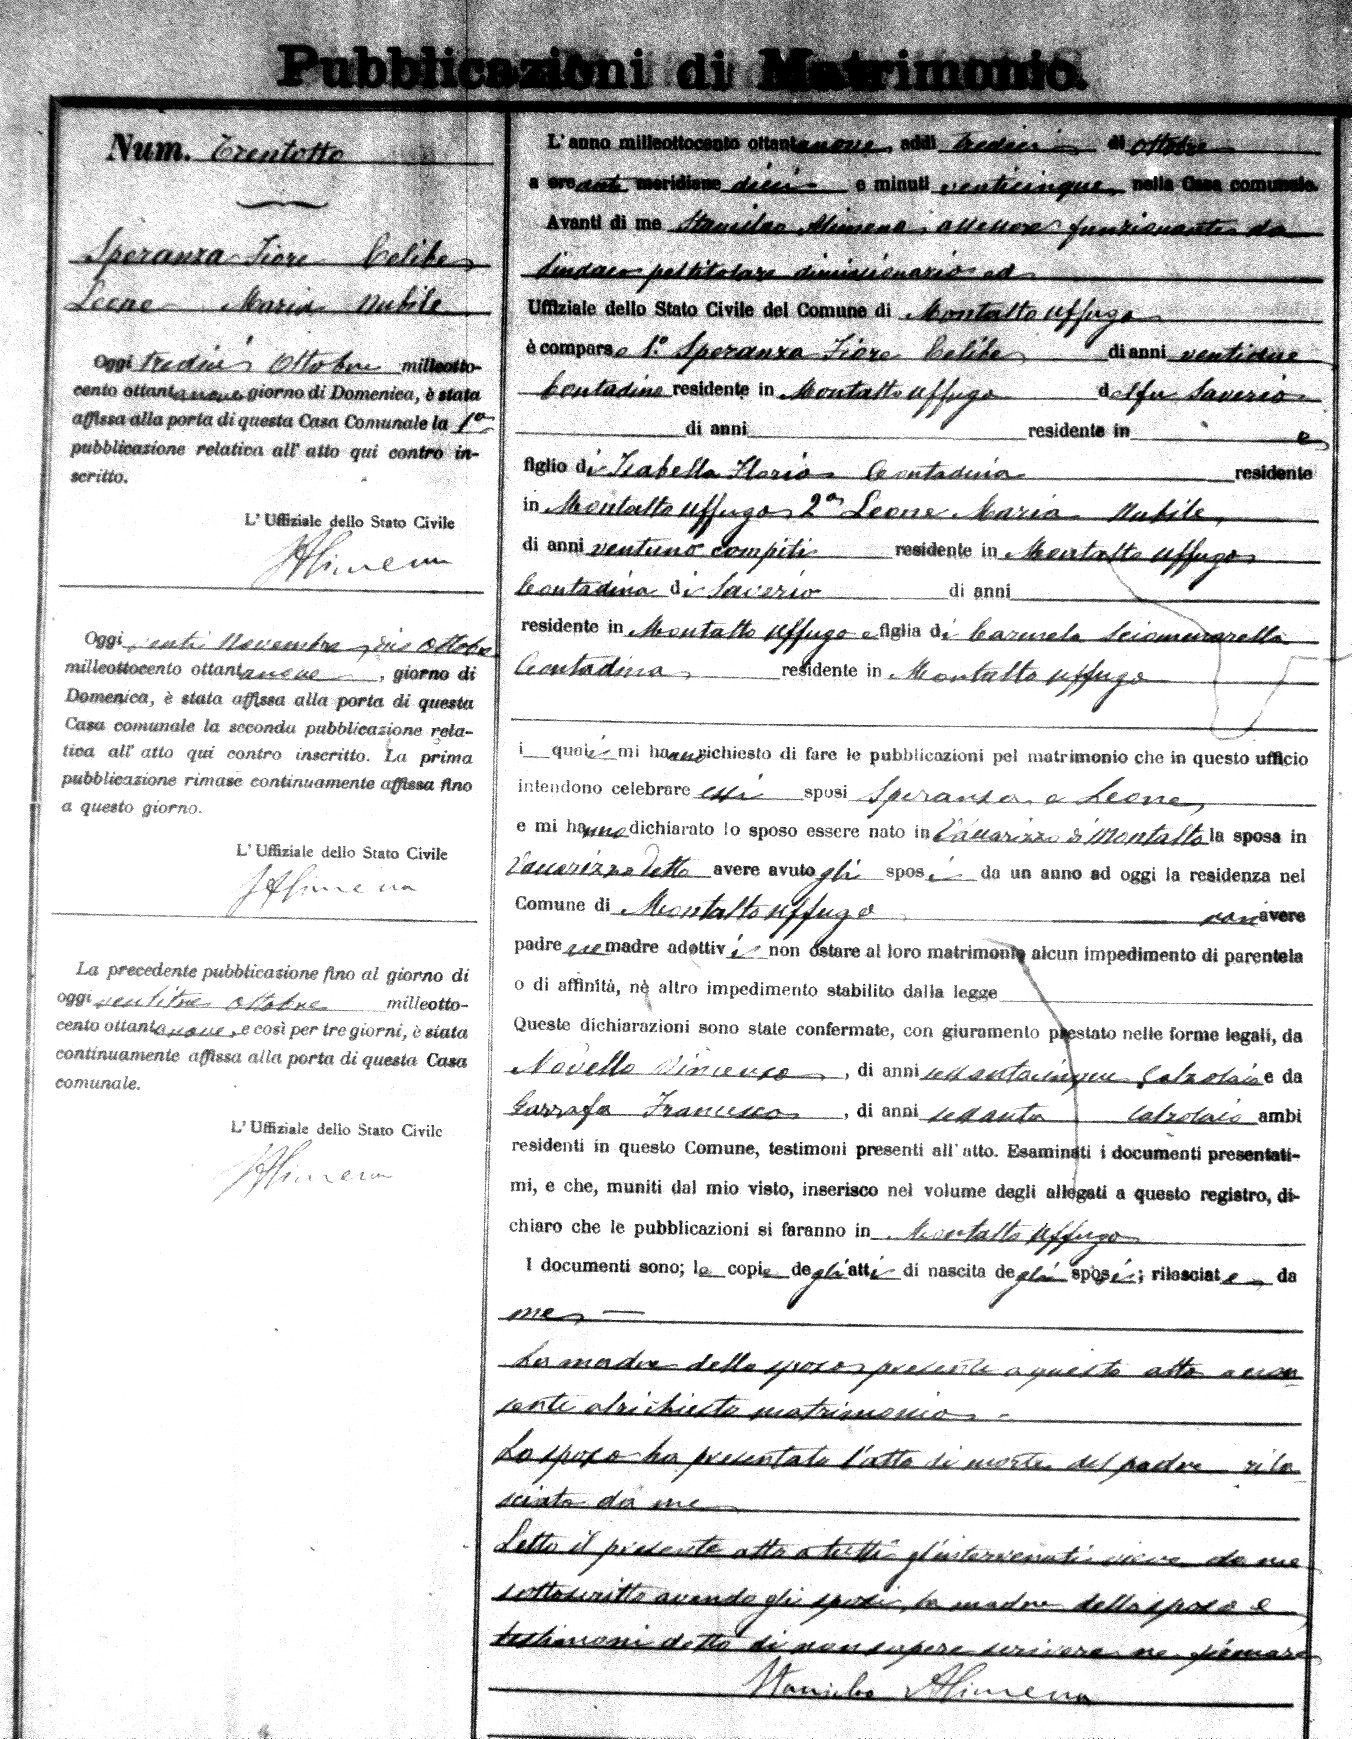 Pubblicazioni di Matrimonio.
Num. Trentotto
Speranza Fiore Celibe
Leone Maria nubile
Oggi tredici Ottobre milleotto-
cento ottantanove, giorno di Domenica, è stata
affissa alla porta di questa Casa Comunale la 1a
pubblicazione relativa all' atto qui contro in-
scritto.
L' Uffiziale dello Stato Civile
SAlimena
Oggi venti Novembre, dico Ottobre
milleottocento ottantanove, giorno di
Domenica, è stata affissa alla porta di questa
Casa comunale la seconda pubblicazione rela-
tiva all' atto qui contro inscritto. La prima
pubblicazione rimase continuamente affissa fino
a questo giorno.
L' Uffiziale dello Stato Civile
SAlimena
La precedente pubblicazione fino al giorno di
oggi ventitre ottobre milleotto-
cento ottantanove, e così per tre giorni, è stata
continuamente affissa alla porta di questa Casa
comunale.
L' Uffiziale dello Stato Civile
SAlimena
L' anno milleottocento ottantanove, addì tredici di ottobre
a ore anti meridiane dieci e minuti venticinque, nella Casa comunale.
Avanti di me Stanislao Alimena, assessore funzionante da
sindaco pel titolare dimissionario ed
Uffiziale dello Stato Civile del Comune di Montalto Uffugo
è comparso 1.o Speranza Fiore Celibe di anni ventidue
Contadino residente in Montalto Uffugo del fu Saverio
di anni residente in e
figlio di Isabella Ilario Contadina residente
in Montalto Uffugo, 2a Leone Maria Nubile,
di anni ventuno compiti residente in Montalto Uffugo
Contadina di Saverio di anni
residente in Montalto Uffugo e figlia di Carmela
Contadina residente in Montalto Uffugo
i quali mi hanno richiesto di fare le pubblicazioni pel matrimonio che in questo ufficio
intendono celebrare essi sposi Speranza e Leone,
e mi hanno dichiarato lo sposo essere nato in Vaccarizzo di Montalto la sposa in
Vaccarizzo detto avere avuto gli sposi da un anno ad oggi la residenza nel
Comune di Montalto Uffugo non avere
padre ne madre adottivi non ostare al loro matrimonio alcun impedimento di parentela
o di affinità, nè altro impedimento stabilito dalla legge
Queste dichiarazioni sono state confermate, con giuramento prestato nelle forme legali, da
Novello Vincenzo, di anni sessantacinque Calzolaio e da
Garrafa Francesco, di anni sessanta Calzolaio ambi
residenti in questo Comune, testimoni presenti all' atto. Esaminati i documenti presentati-
mi, e che, muniti dal mio visto, inserisco nel volume degli allegati a questo registro, di-
chiaro che le pubblicazioni si faranno in Montalto Uffugo
I documenti sono; le copie degli atti di nascita degli sposi; rilasciate da
me
La madre dello sposo presente a questo atto accon-
sente al richiesto matrimonio
Lo sposo ha presentato l'atto di morte del padre rila-
sciato da me
Letto il presente atto a tutti gl'intervenuti viene da me
sottoscritto avendo gli sposi, la madre dello sposo e
testimoni detto di non sapere scrivere ne firmare
Stanislao Alimena